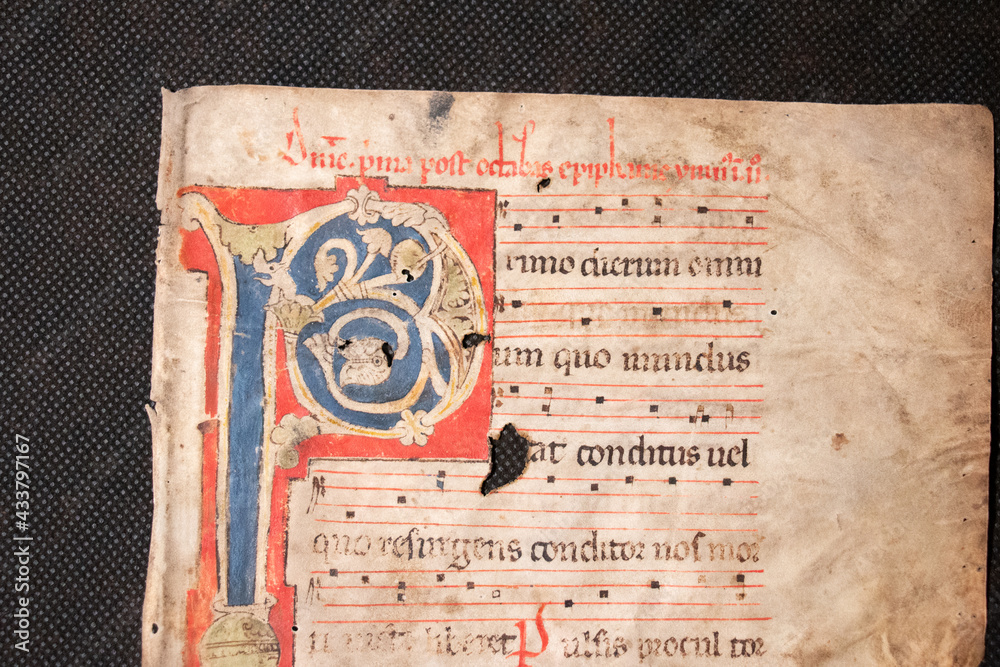 Dnīc. pͥma post octabas epiphanie
Primo dierum omni
um quo mundus
at conditus uel
quo resurgens conditor nos mor
liberet Pulsis procul tor
Adobe Stock | #433797167